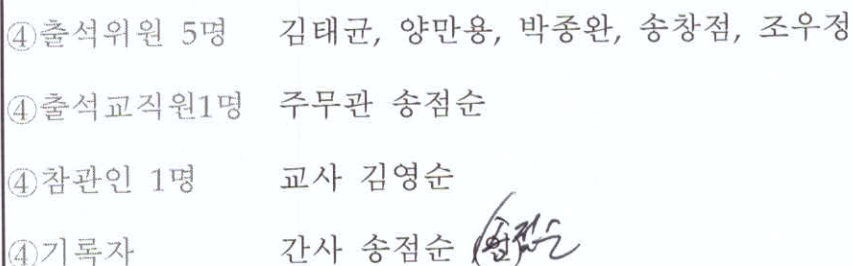 ④출석위원 5명 김태균, 양만용, 박종완, 송창점, 조우정
④출석교직원1명 주무관 송점순
④참관인 1명 교사 김영순
④기록자 간사 송점순 (인)